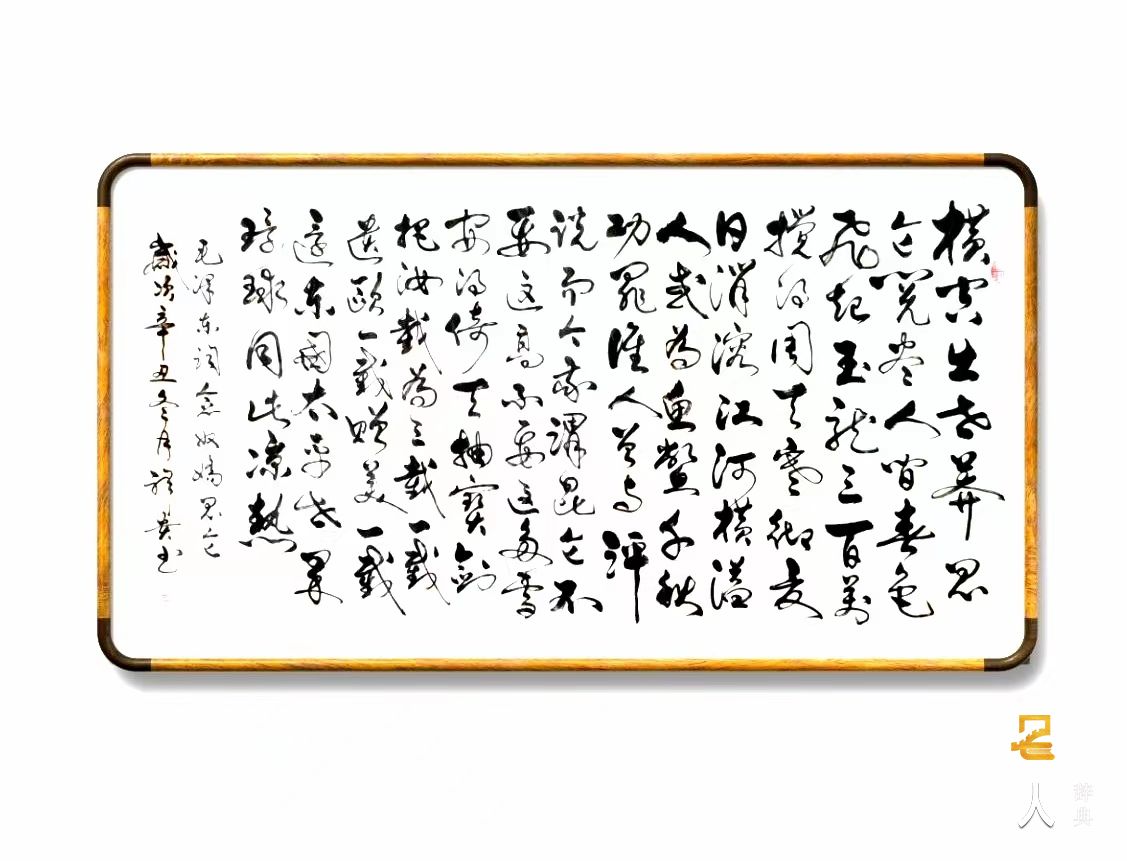 横空出世莽昆
仑阅尽人间春色
飛起玉龍三百萬
搅得周天寒彻夏
日消溶江河横溢
人或为魚鱉千秋
功罪谁人曾与評
说而今我謂昆仑不
要这高不要这多雪
安得倚天抽寶劍
把汝裁为三截一截
遗歐一截赠美一截
还东國太平世界
环球同此凉熱
毛泽东词念奴嬌昆仑
歲次辛丑冬月贵书
人
辞典